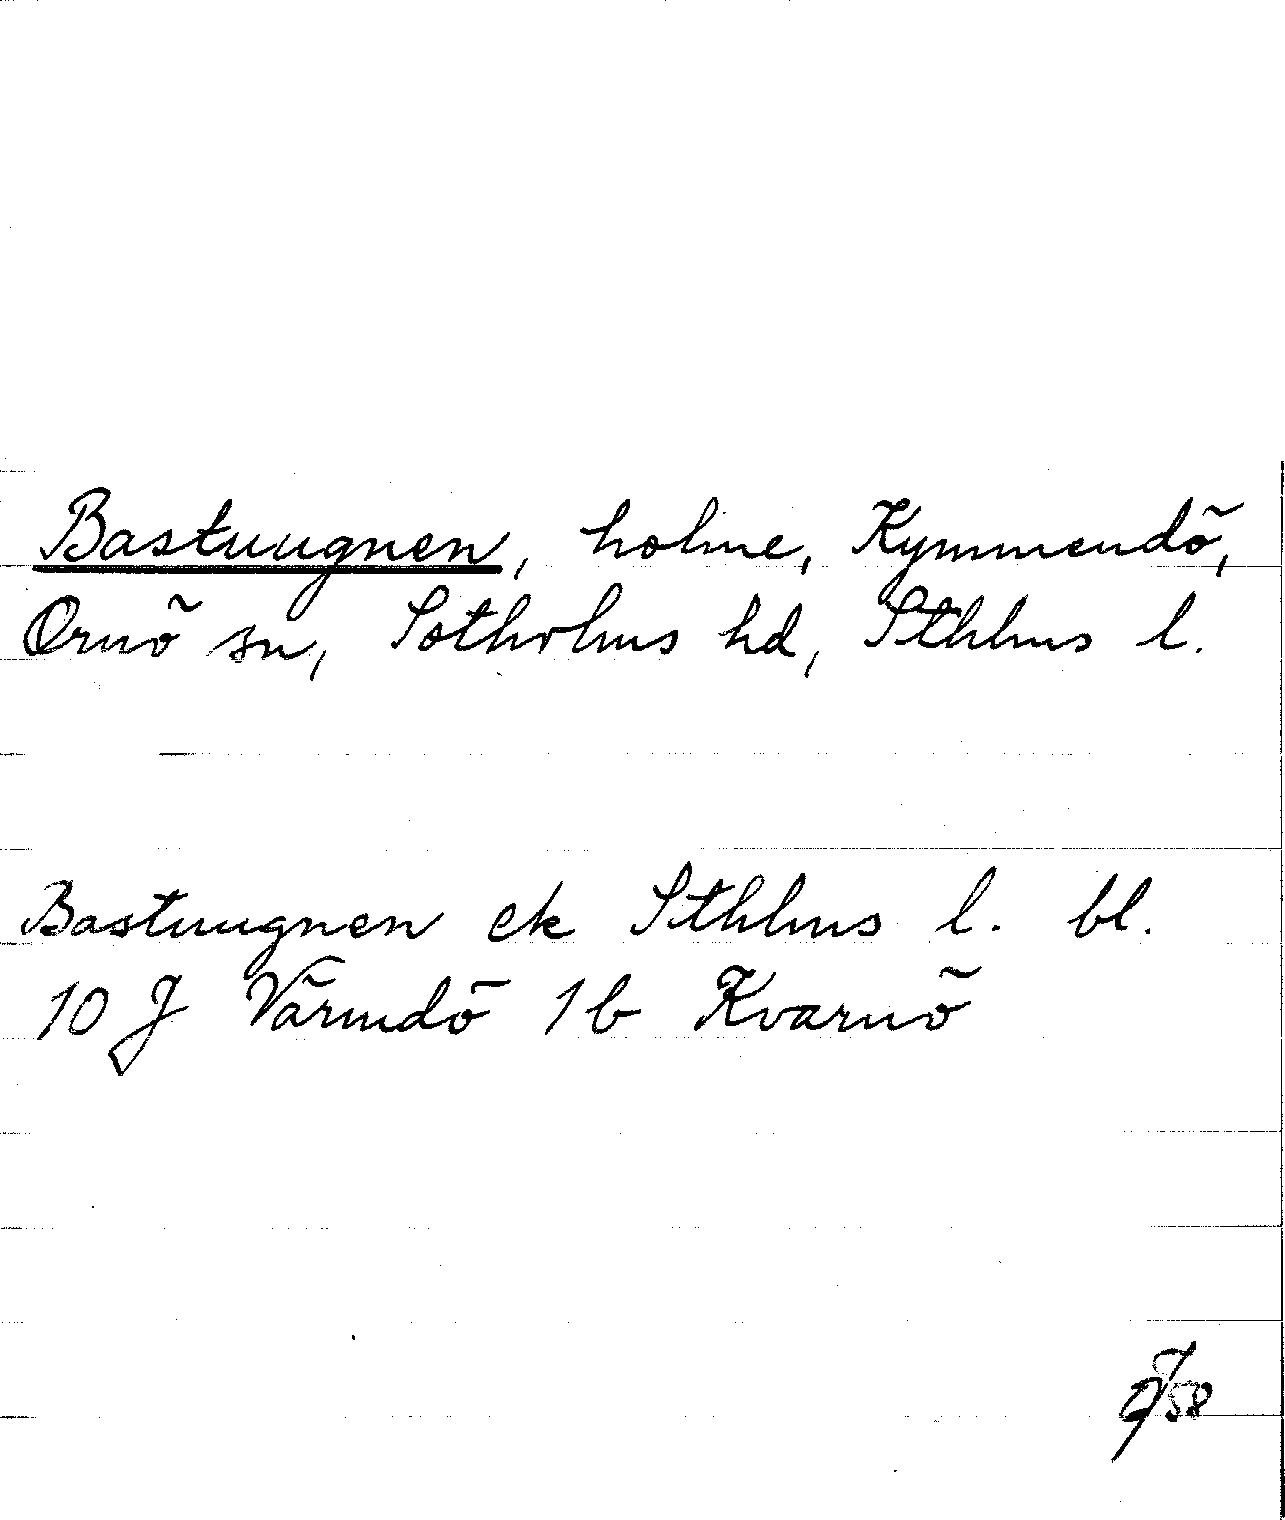 Bastuugnen, holme, Kymmendö,
Ornö sn, Sotholms hd, Sthlms l.
Bastuugnen ek Sthlms l. bl.
10 J Värmdö 1b Kvarnö
58